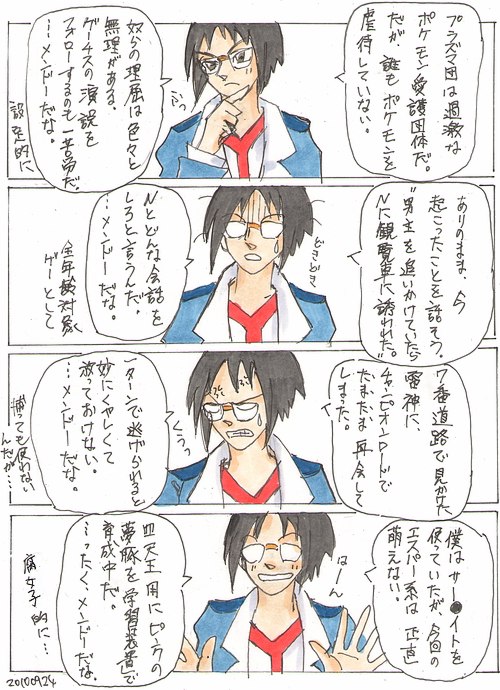 プラズマ団は過激な
ポケモン愛護団体だ。
だが、誰もポケモンを
虐待していない。
ふっ
奴らの理屈は色々と
無理がある、
ゲーチスの演説を
フォローするのも一苦労だ。
…メンドーだな。
設定的に
ありのまま、今
起こったことを話そう。
"男主を追いかけていたら
Nに観覧車に誘われた。"
どきどき
Nとどんな会話を
しろと言うんだ、
…メンドーだな。
全年齢対象
ゲーとして
7番道路で見かけた
雷神に、
チャンピオンロードで
たまたま再会して
しまった。
くうっ
1ターンで逃げられると
妙にくやしくて
放っておけない。
…メンドーだな。
捕っても使わない
んだが…
僕はサー●イトを
使っていたが、今回の
エスパー系は正直
萌えない。
はーん
四天王用にピンクの
夢豚を"学習装置"で
育成中だ。
…ったく、メンドーだな。
腐女子的に…
20100924